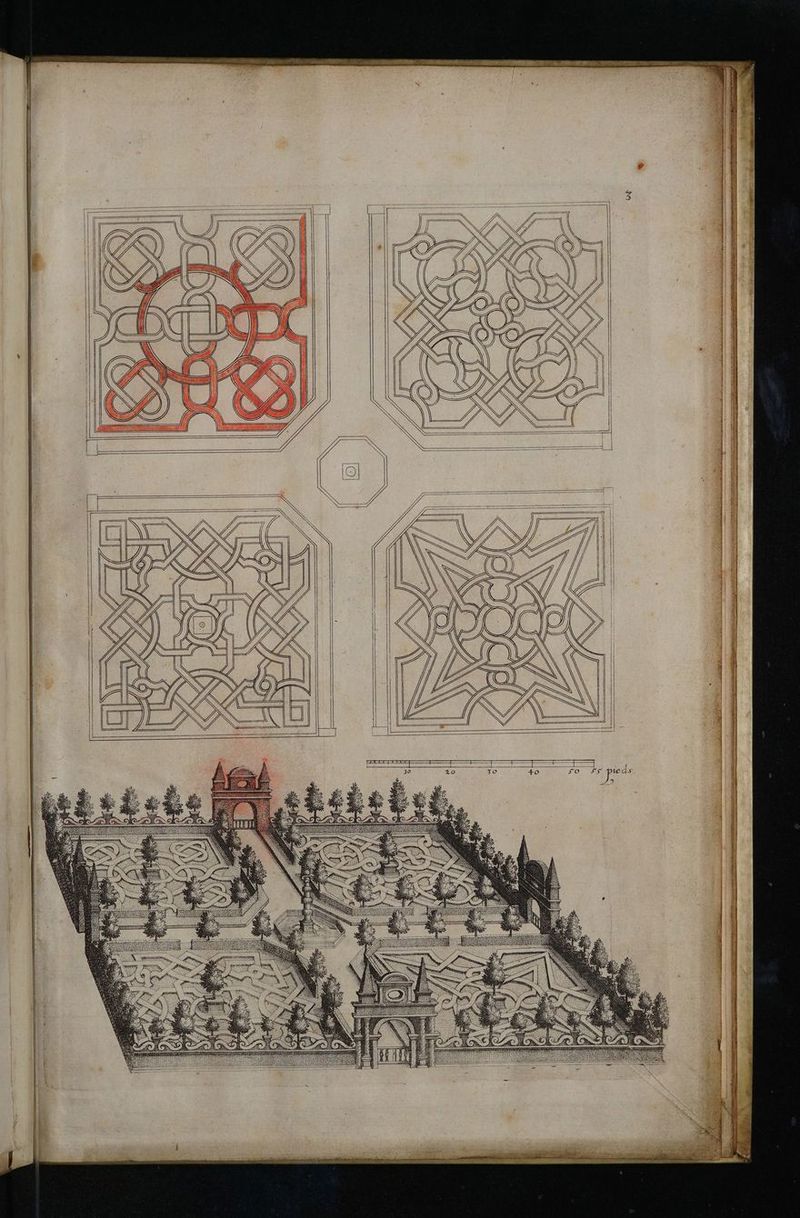 3
10 20 30 40 50 55 pieds